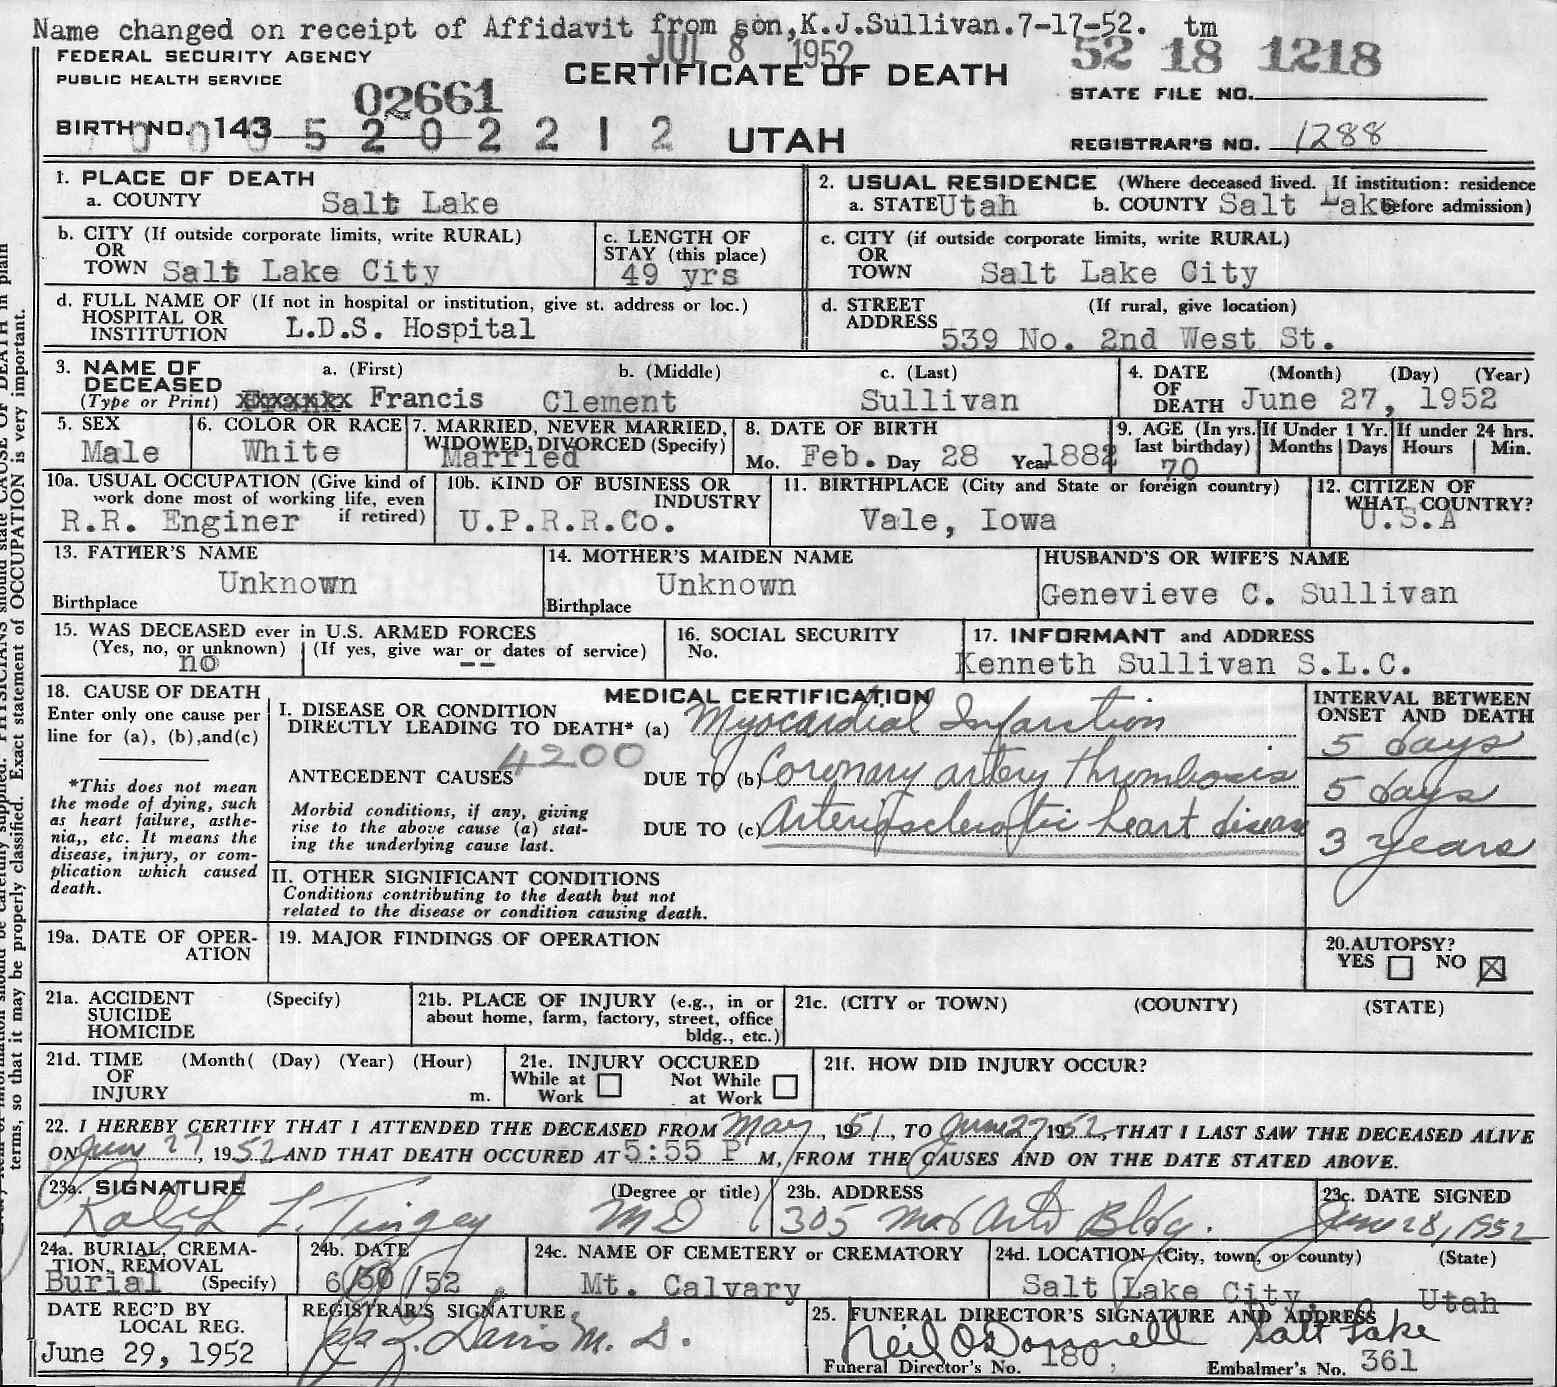 Name changed on receipt of Affidavit from son,K.J.Sullivan.7-17-52. tm
JUL 8 1952
FEDERAL SECURITY AGENCY
PUBLIC HEALTH SERVICE
CERTIFICATE OF DEATH
52 18 1218
STATE FILE NO.
02661
BIRTH NO. 143 5 2 0 2 2 1 2
UTAH
REGISTRAR'S NO. 1288
1. PLACE OF DEATH
a. COUNTY Salt Lake
2. USUAL RESIDENCE (Where deceased lived. If institution: residence before admission)
a. STATE Utah b. COUNTY Salt Lake
b. CITY (If outside corporate limits, write RURAL)
OR
TOWN Salt Lake City
c. LENGTH OF
STAY (this place)
49 yrs
c. CITY (if outside corporate limits, write RURAL)
OR
TOWN Salt Lake City
d. FULL NAME OF (If not in hospital or institution, give st. address or loc.)
HOSPITAL OR
INSTITUTION L.D.S. Hospital
d. STREET (If rural, give location)
ADDRESS 539 No. 2nd West St.
3. NAME OF
DECEASED
(Type or Print)
a. (First) b. (Middle) c. (Last)
Francis Clement Sullivan
4. DATE (Month) (Day) (Year)
OF
DEATH June 27, 1952
5. SEX
Male
6. COLOR OR RACE
White
7. MARRIED, NEVER MARRIED,
WIDOWED, DIVORCED (Specify)
Married
8. DATE OF BIRTH
Mo. Feb. Day 28 Year 1882
9. AGE (In yrs.
last birthday)
70
If Under 1 Yr.
Months Days
If under 24 hrs.
Hours Min.
10a. USUAL OCCUPATION (Give kind of
work done most of working life, even
if retired)
R.R. Enginer
10b. KIND OF BUSINESS OR
INDUSTRY
U.P.R.R.Co.
11. BIRTHPLACE (City and State or foreign country)
Vale, Iowa
12. CITIZEN OF
WHAT COUNTRY?
U.S.A
13. FATHER'S NAME
Unknown
Birthplace
14. MOTHER'S MAIDEN NAME
Unknown
Birthplace
HUSBAND'S OR WIFE'S NAME
Genevieve C. Sullivan
15. WAS DECEASED ever in U.S. ARMED FORCES
(Yes, no, or unknown) (If yes, give war or dates of service)
no --
16. SOCIAL SECURITY
No.
17. INFORMANT and ADDRESS
Kenneth Sullivan S.L.C.
18. CAUSE OF DEATH
Enter only one cause per
line for (a), (b),and(c)
*This does not mean
the mode of dying, such
as heart failure, asthe-
nia,, etc. It means the
disease, injury, or com-
plication which caused
death.
MEDICAL CERTIFICATION
I. DISEASE OR CONDITION
DIRECTLY LEADING TO DEATH* (a) Myocardial Infarction
4200
ANTECEDENT CAUSES DUE TO (b) Coronary artery thrombosis
Morbid conditions, if any, giving
rise to the above cause (a) stat-
ing the underlying cause last.
DUE TO (c) Arteriosclerotic heart disease
INTERVAL BETWEEN
ONSET AND DEATH
5 days
5 days
3 years
II. OTHER SIGNIFICANT CONDITIONS
Conditions contributing to the death but not
related to the disease or condition causing death.
19a. DATE OF OPER-
ATION
19. MAJOR FINDINGS OF OPERATION
20.AUTOPSY?
YES NO
21a. ACCIDENT (Specify)
SUICIDE
HOMICIDE
21b. PLACE OF INJURY (e.g., in or
about home, farm, factory, street, office
bldg., etc.)
21c. (CITY or TOWN) (COUNTY) (STATE)
21d. TIME (Month( (Day) (Year) (Hour)
OF
INJURY m.
21e. INJURY OCCURED
While at Work Not While at Work
21f. HOW DID INJURY OCCUR?
22. I HEREBY CERTIFY THAT I ATTENDED THE DECEASED FROM May, 1951, TO June 27, 1952, THAT I LAST SAW THE DECEASED ALIVE
ON June 27, 1952 AND THAT DEATH OCCURED AT 5:55 P M, FROM THE CAUSES AND ON THE DATE STATED ABOVE.
23a. SIGNATURE (Degree or title)
Ralph L. Tingey MD
23b. ADDRESS
305 Med Arts Bldg.
23c. DATE SIGNED
June 28, 1952
24a. BURIAL, CREMA-
TION, REMOVAL
Burial (Specify)
24b. DATE
6/30/52
24c. NAME OF CEMETERY or CREMATORY
Mt. Calvary
24d. LOCATION (City, town, or county) (State)
Salt Lake City, Utah
DATE REC'D BY
LOCAL REG.
June 29, 1952
REGISTRAR'S SIGNATURE
Davis M. D.
25. FUNERAL DIRECTOR'S SIGNATURE AND ADDRESS
Neil O'Donnell Salt Lake
Funeral Director's No. 180, Embalmer's No. 361